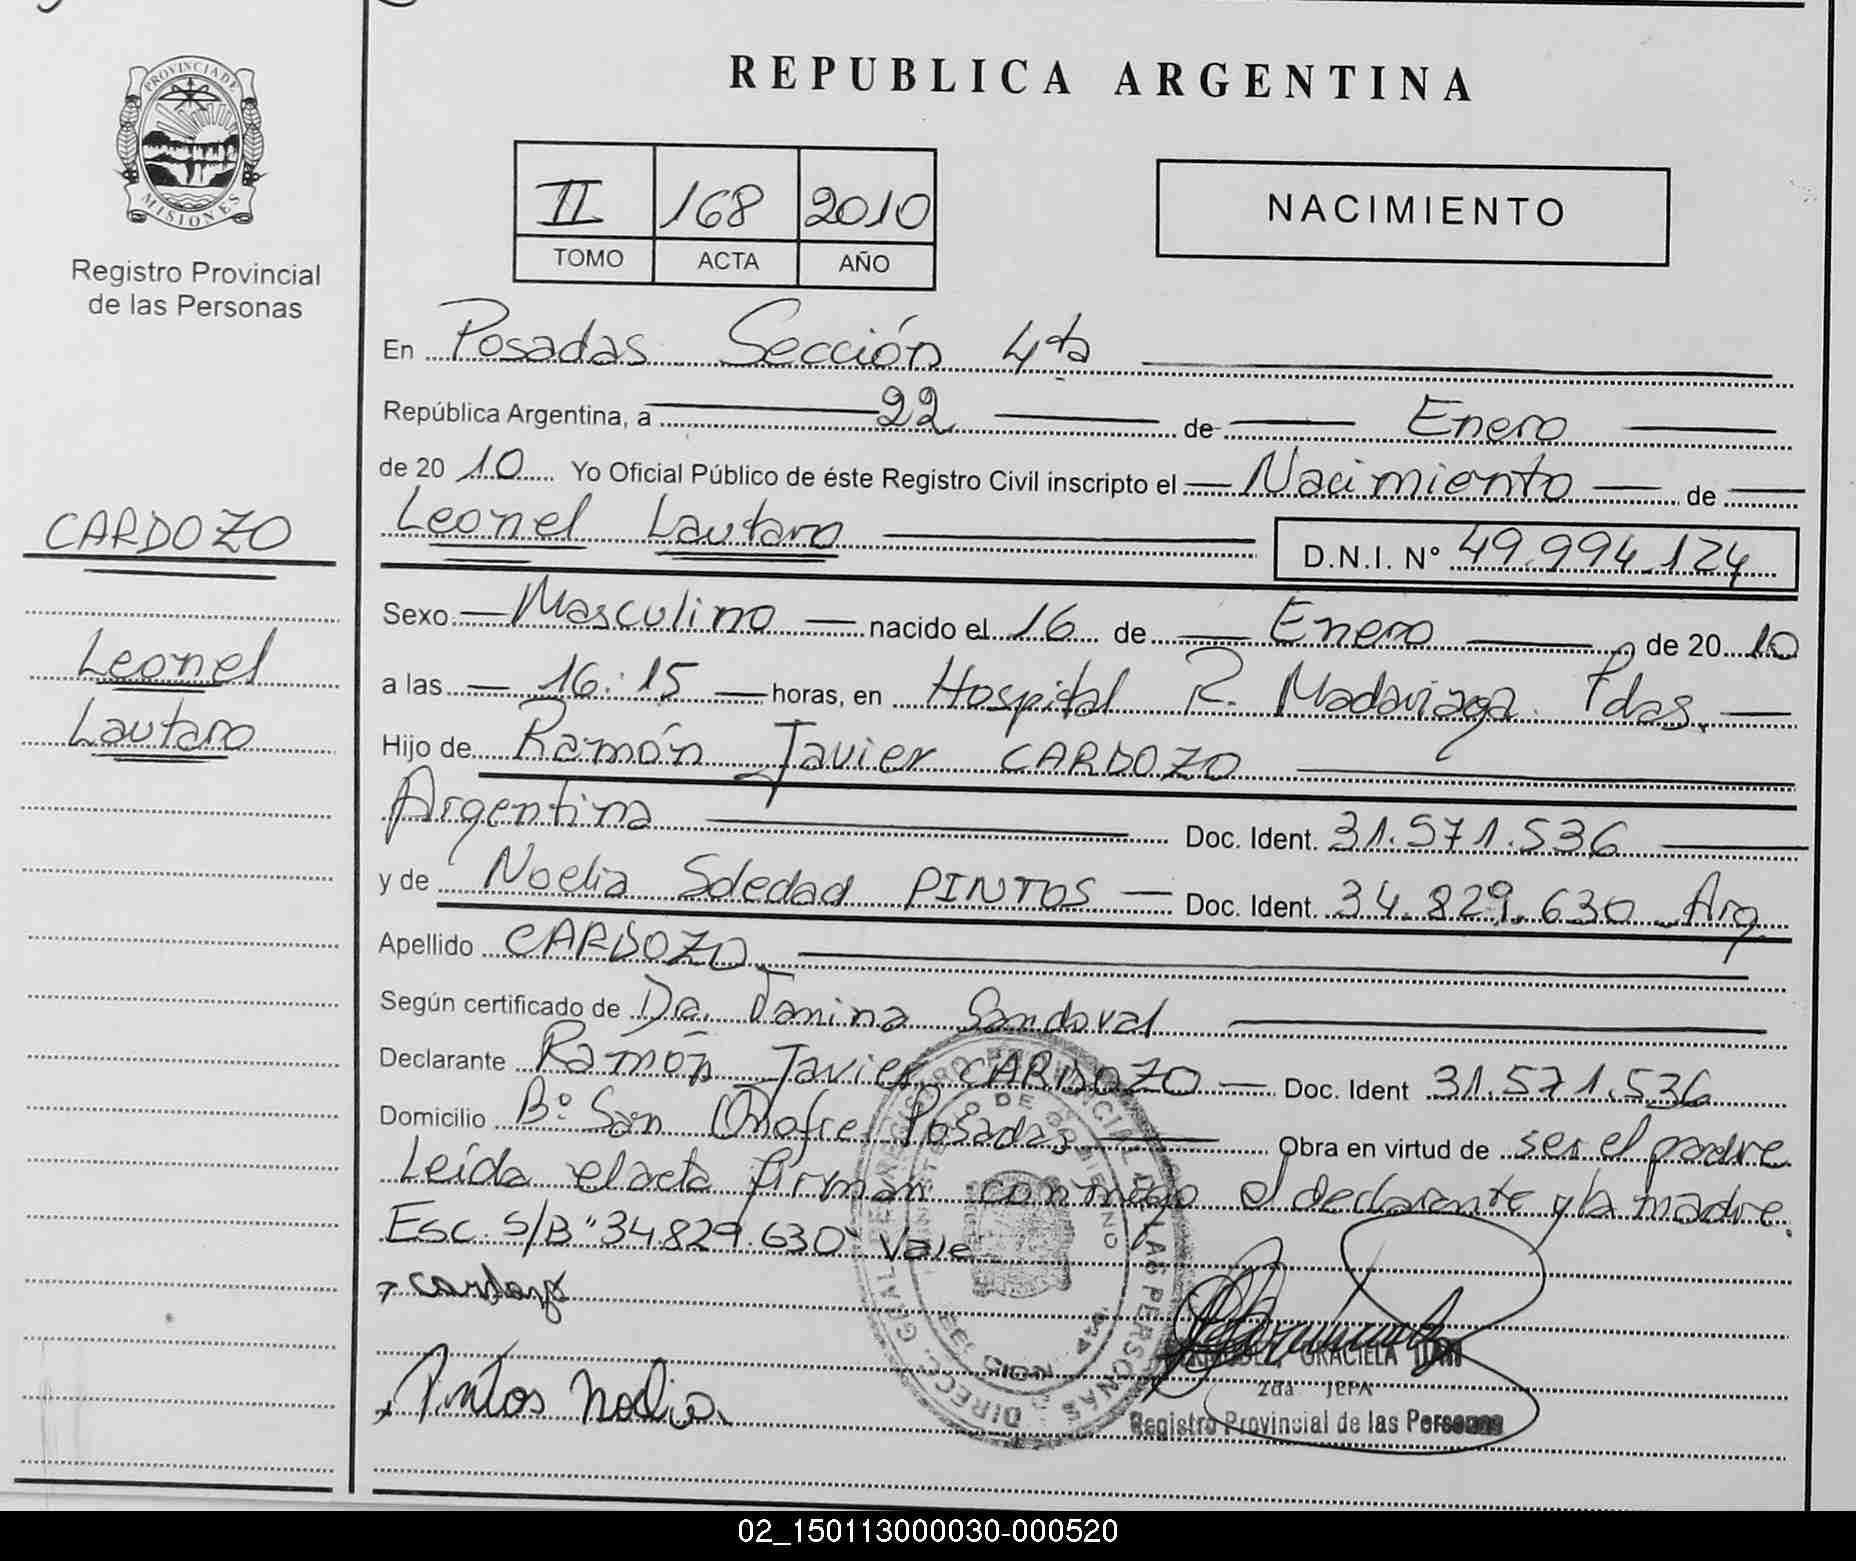 PROVINCIA DE
MISIONES
Registro Provincial
de las Personas
CARDOZO
Leonel
Lautaro
REPUBLICA ARGENTINA
II 168 2010
TOMO ACTA AÑO
NACIMIENTO
En Posadas Sección 4ta
República Argentina, a 22 de Enero
de 20 10 Yo Oficial Público de éste Registro Civil inscripto el Nacimiento de
Leonel Lautaro D.N.I. Nº 49.994.124
Sexo Masculino nacido el 16 de Enero de 20 10
a las 16:15 horas, en Hospital R. Madariaga Pdas.
Hijo de Ramón Javier CARDOZO
Argentina Doc. Ident. 31.571.536
y de Noelia Soledad PINTOS Doc. Ident. 34.829.630 Arg
Apellido CARDOZO
Según certificado de Dra. Janina Sandoval
Declarante Ramón Javier CARDOZO Doc. Ident 31.571.536
Domicilio Bº San Onofre Posadas Obra en virtud de ser el padre
Leída el acta firman conmigo el declarante y la madre.
Esc. S/B "34.829.630" Vale
cardozo
Pintos Noelia
GRACIELA
2da JEFA
Registro Provincial de las Personas
DIRECC. GRAL. DE REGISTRO PROVINCIAL DE LAS PERSONAS
02_150113000030-000520